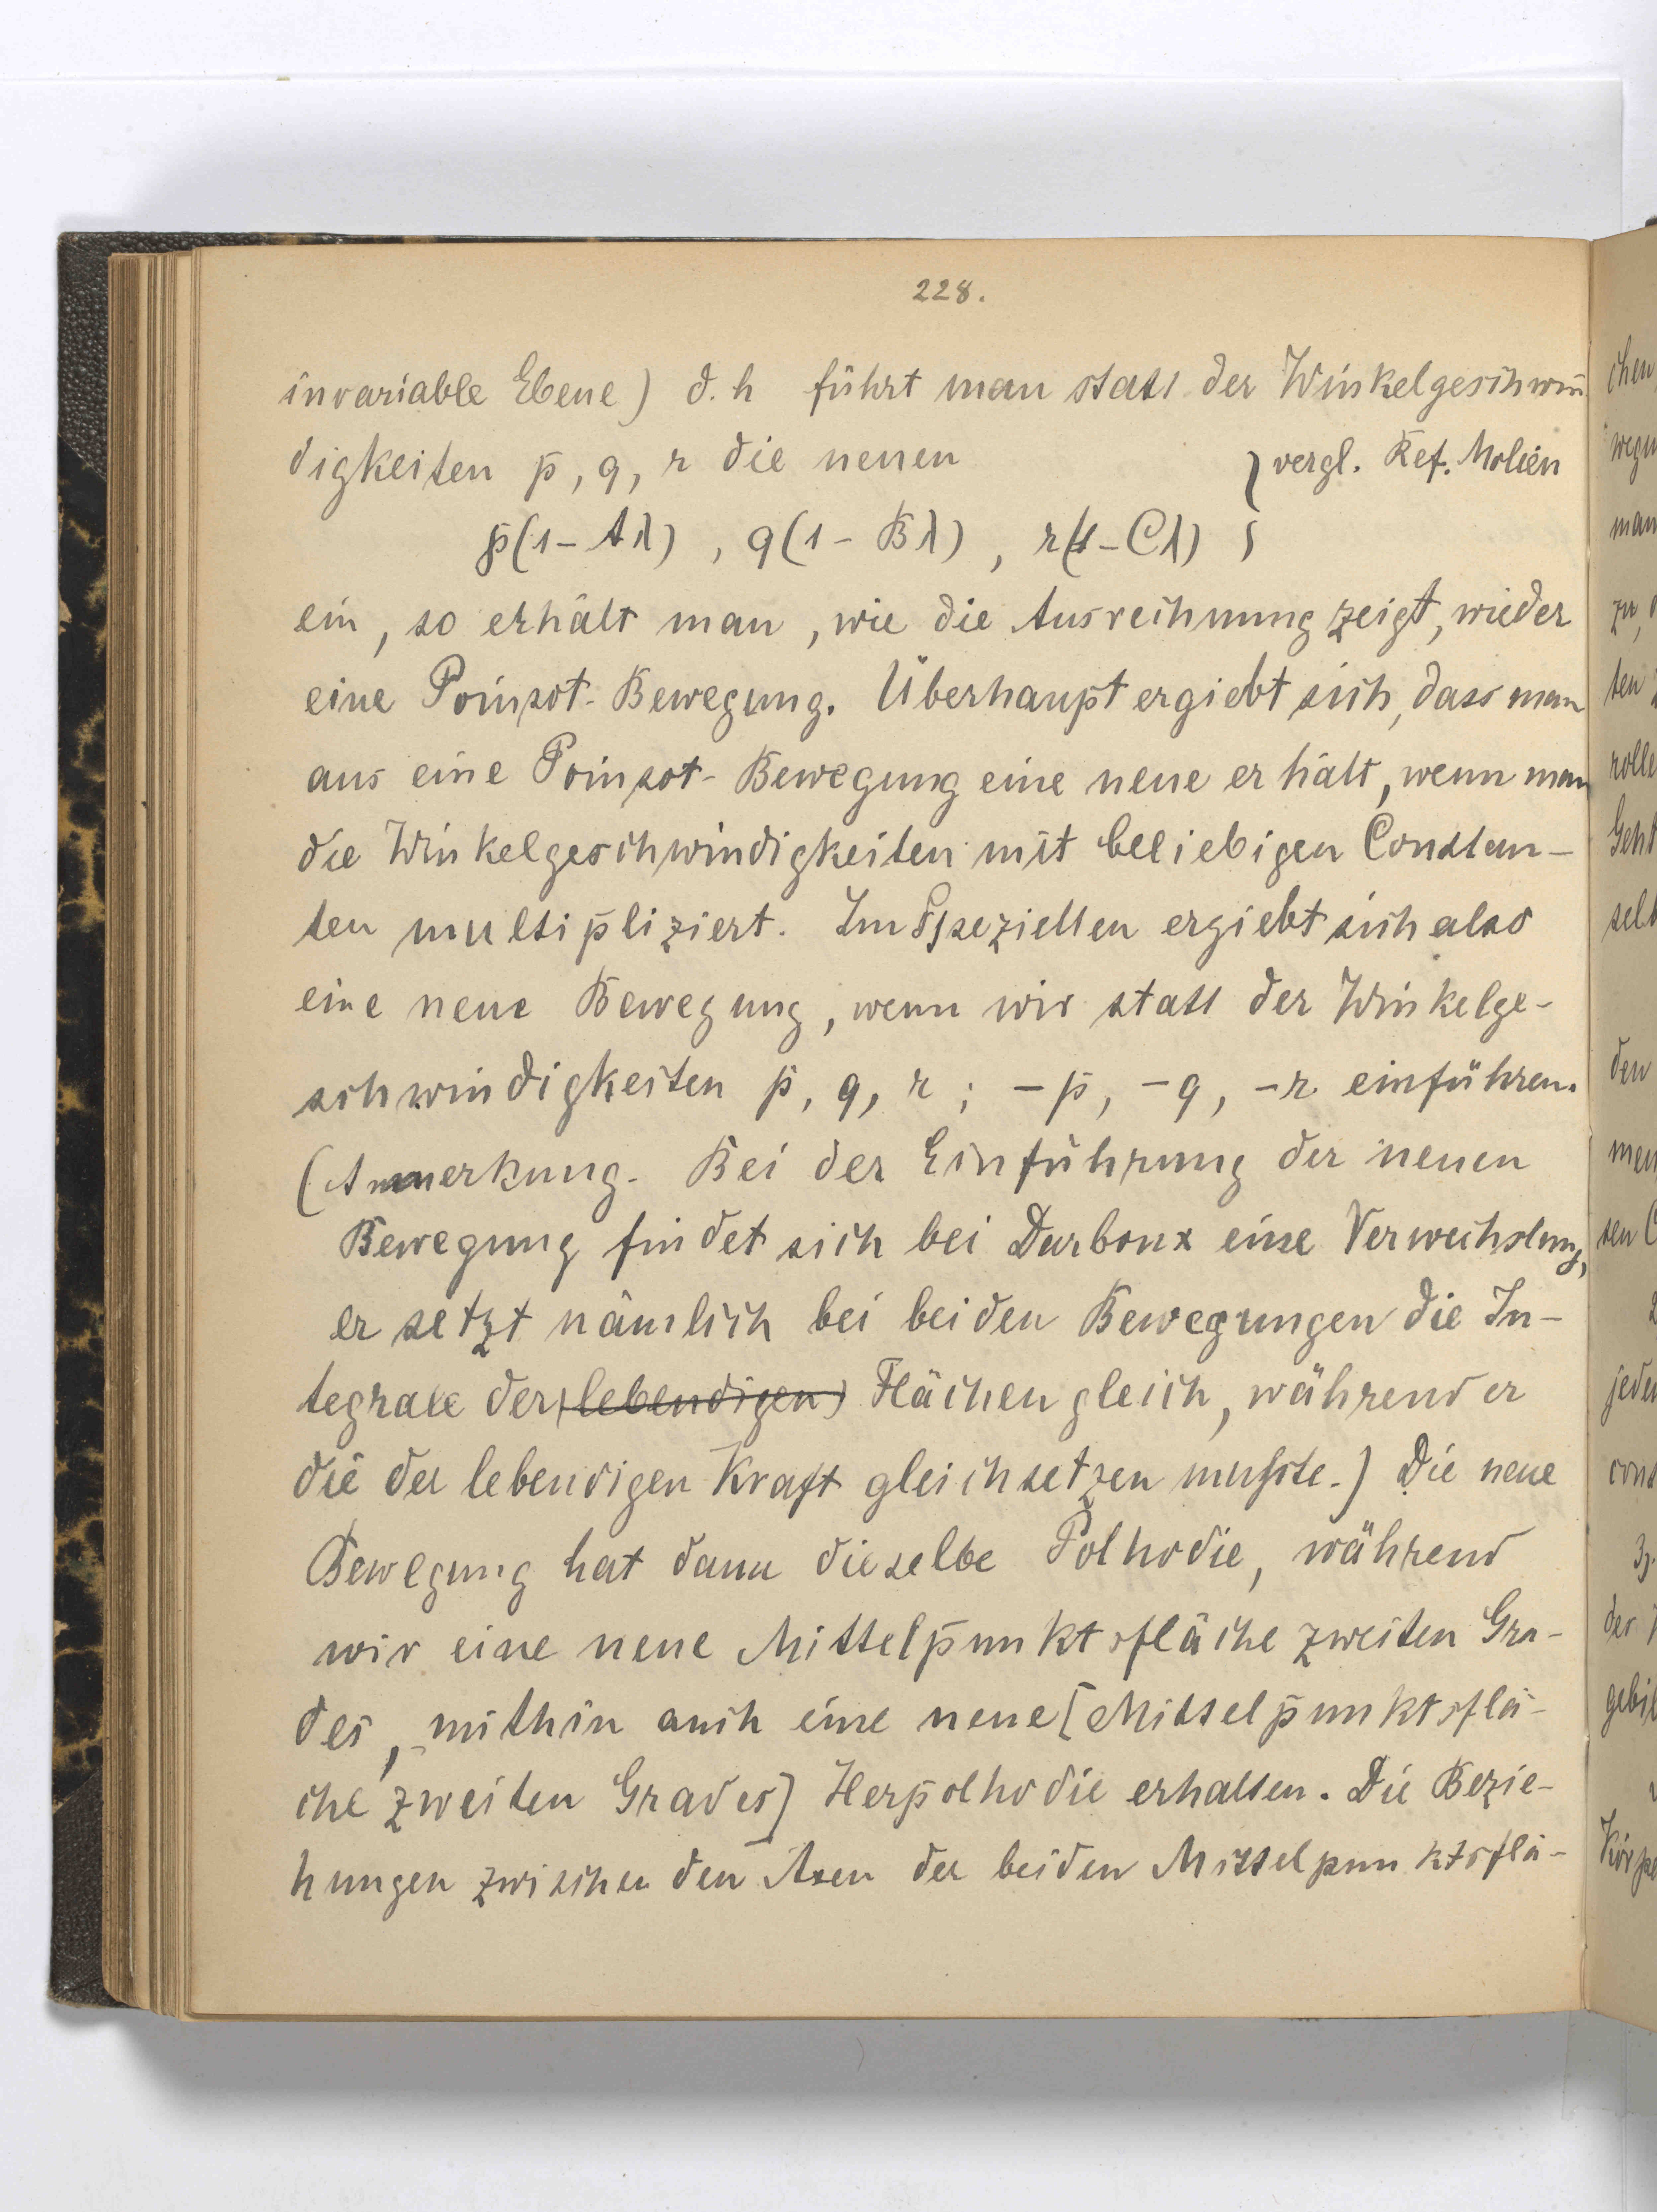 228.
invariable Ebene) d. h führt man statt der Winkelgeschwin̄
digkeiten p, q, r die neuen } vergl. Ref. Molien
p(1-Aλ), q(1-Bλ), r(1-Cλ)
ein, so erhält man, wie die Ausrechnung zeigt, wieder
eine Poinsot-Bewegung. Überhaupt ergiebt sich, dass man
aus eine Poinsot-Bewegung eine neue erhält, wenn man
die Winkelgeschwindigkeiten mit beliebigen Constan-
ten multipliziert. Im Speziellen ergiebt sich also
eine neue Bewegung, wenn wir statt der Winkelge-
schwindigkeiten p, q, r; -p, -q, -r einführen.
(Anmerkung. Bei der Einführung der neuen
Bewegung findet sich bei Darboux eine Verwechslung,
er setzt nämlich bei beiden Bewegungen die In-
tegrale der (lebendigen) Flächen gleich, während er
die der lebendigen Kraft gleichsetzen musste.) Die neue
Bewegung hat dann dieselbe Polhodie, während
wir eine neue Mittelpunktsfläche zweiten Gra-
des, mithin auch eine neue [Mittelpunktsflä-
che zweiten Grades] Herpolhodie erhalten. Die Bezie-
hungen zwischen den Axen der beiden Mittelpunktsflä-